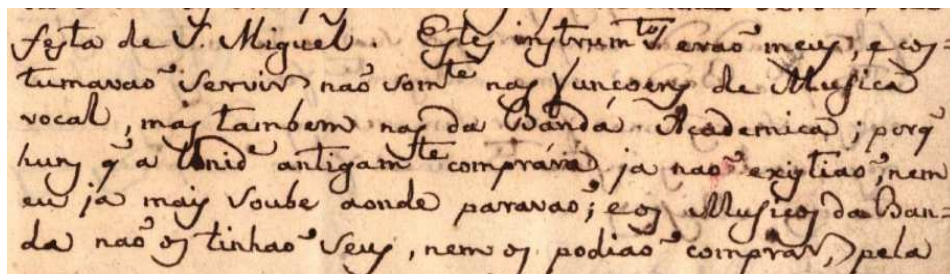 festa de S. Miguel. Estes instrum.tos erão meus, e cos-
tumavão servir não som.te nas funçoens de Musica
vocal, mas tambem nas da Banda Academica; porq̃
huns q̃ a Unid.e antigam.te comprára, ja não existião, nem
eu ja mais soube aonde paravão; e os Musicos da Ban-
da não os tinhão seus, nem os podião comprar, pela